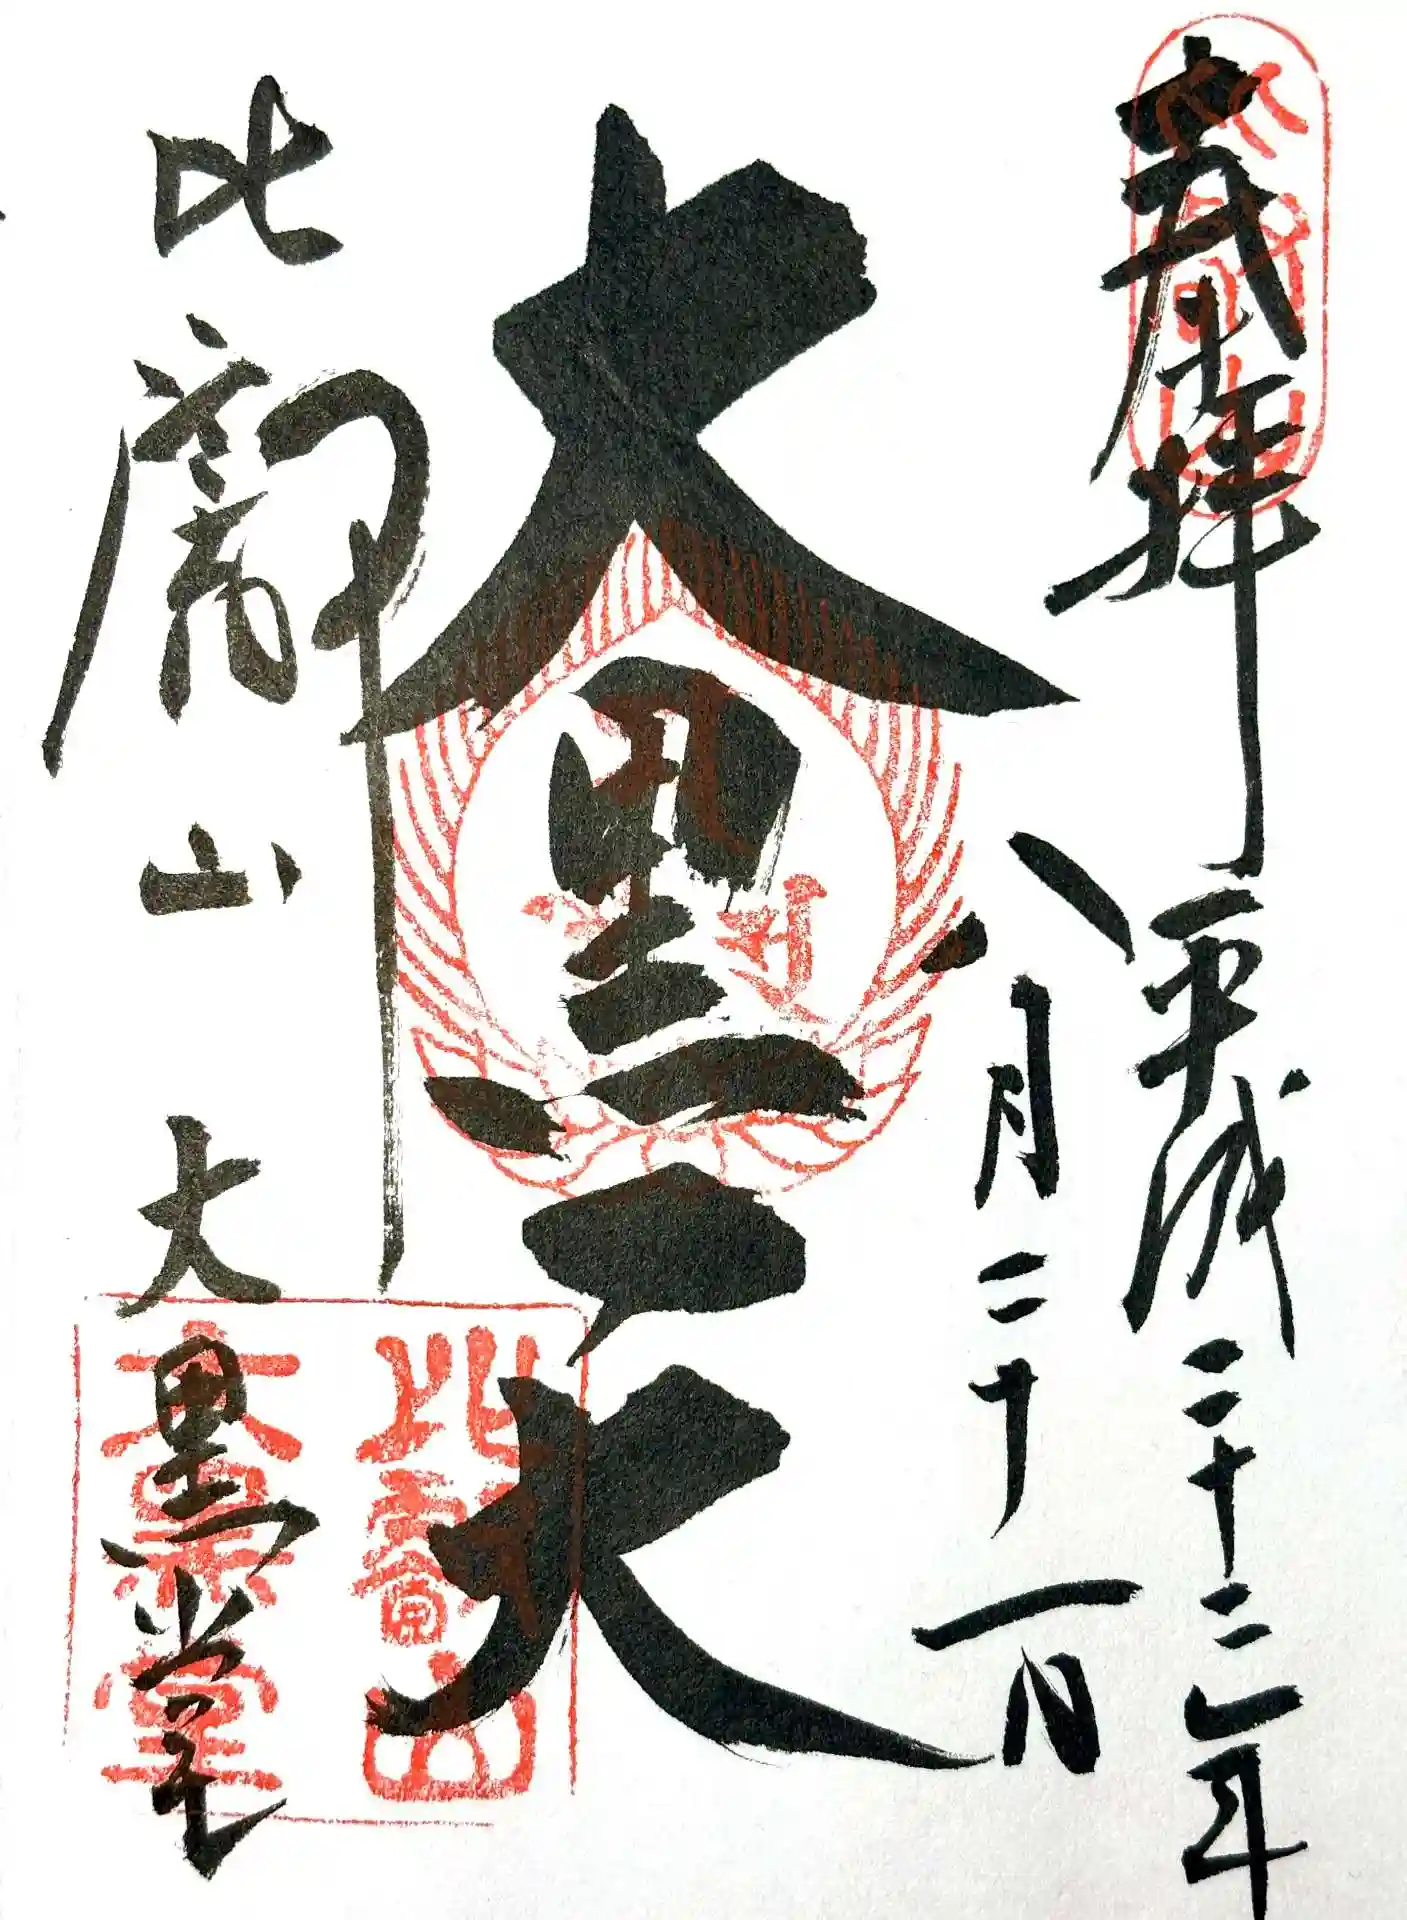 奉拝
平成二十三年
八月二十一日
大黒天
比叡山
大黒堂
比叡山
大黒堂